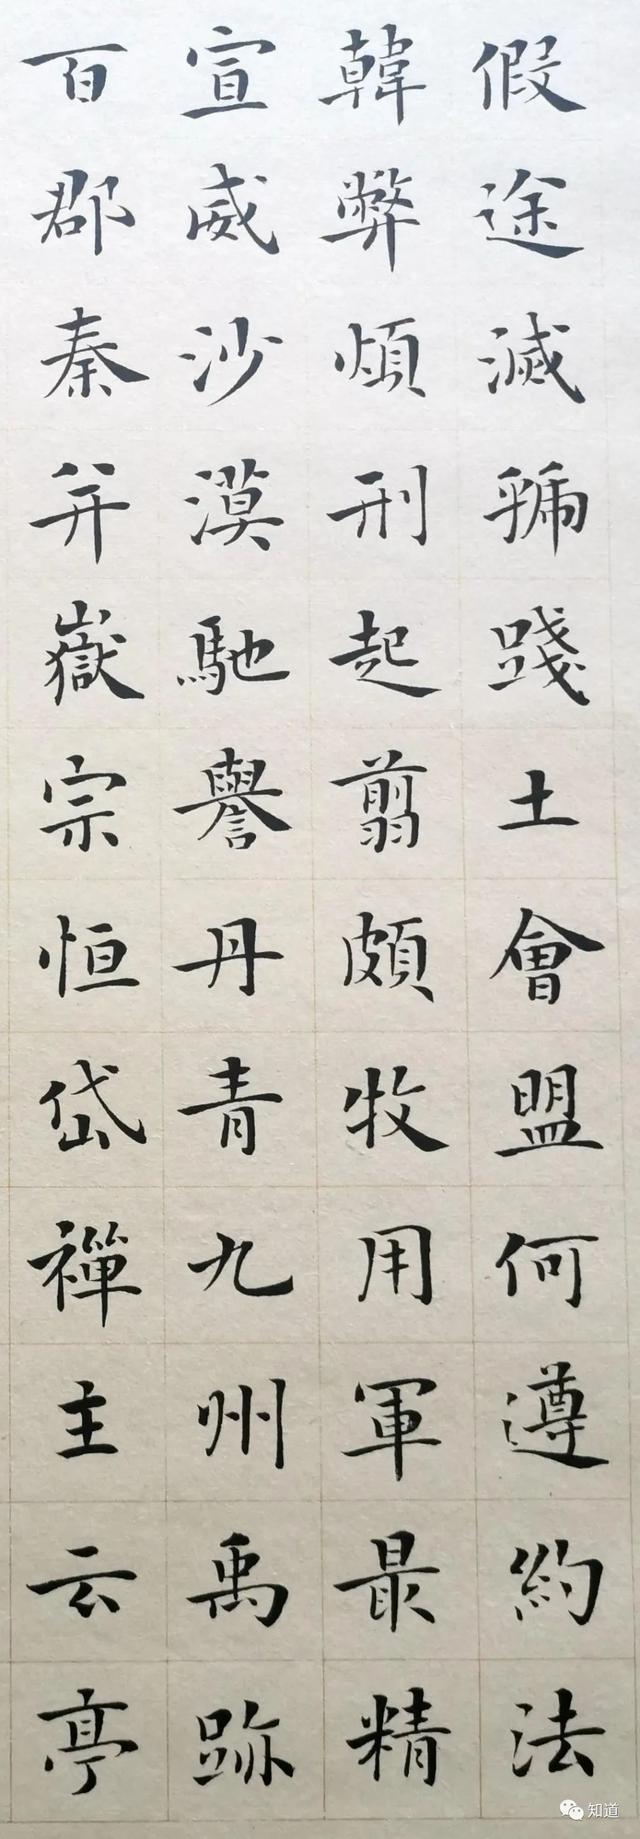 假途滅虢踐土會盟何遵約法
韓弊煩刑起翦頗牧用軍最精
宣威沙漠馳譽丹青九州禹跡
百郡秦并嶽宗恒岱禪主云亭
知道